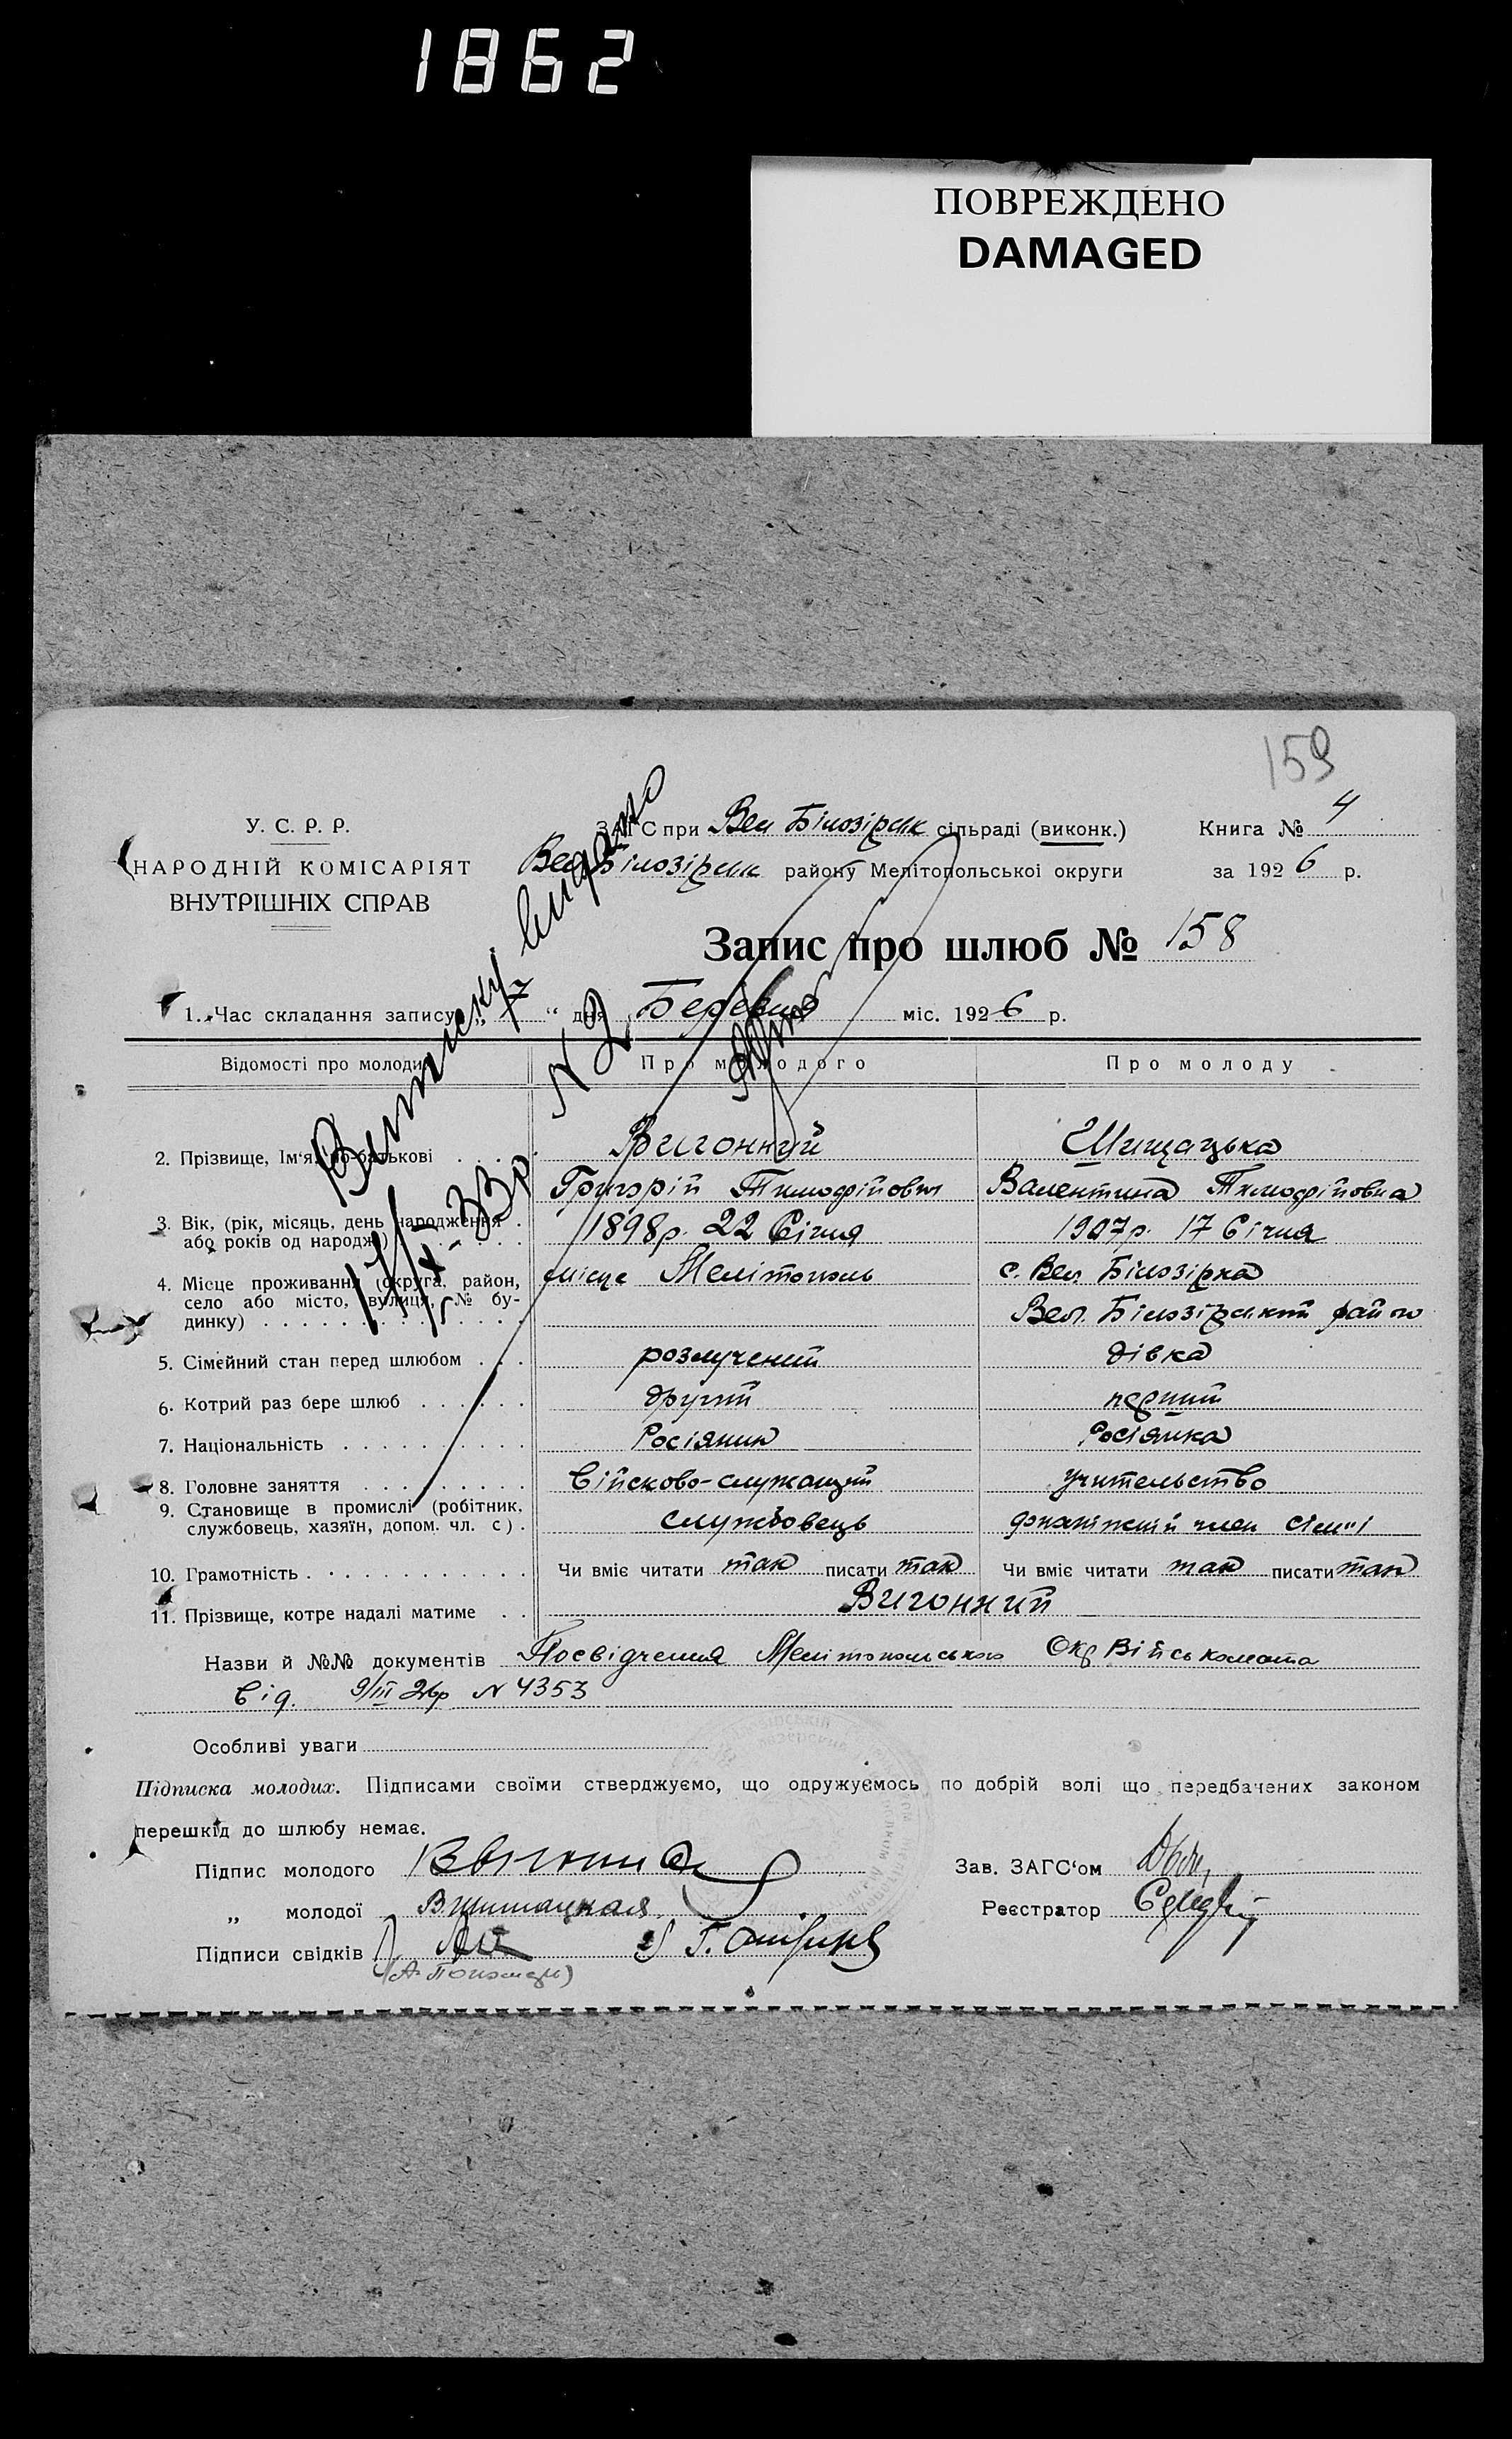 1862
ПОВРЕЖДЕНО
DAMAGED
159
У. С. Р. Р.
НАРОДНІЙ КОМІСАРІЯТ
ВНУТРІШНІХ СПРАВ
ЗАГС при Вел Білозірськ сільраді (виконк.)
Вел Білозірськ району Мелітопольської округи
Книга № 4
за 1926 р.
Запис про шлюб № 158
1. Час складання запису „ 7 “ дня Березня міс. 1926 р.
Виписку видано
N 2
17/4-33р
Відомості про молодих
Про молодого
Про молоду
2. Прізвище, Ім'я, по-батькові . . . .
Вигонний
Григорій Тимофійович
Шишацька
Валентина Тимофіївна
3. Вік, (рік, місяць, день народження або років од народж.)
1898р. 22 Січня
1907р. 17 Січня
4. Місце проживання (округа, район, село або місто, вулиця, № будинку)
місце Мелітополь
с. Вел. Білозірка
Вел. Білозірський район
5. Сімейний стан перед шлюбом . . .
розлучений
дівка
6. Котрий раз бере шлюб . . . . . .
другий
перший
7. Національність . . . . . . . . . .
Росіянин
Росіянка
8. Головне заняття . . . . . . . . .
Військово-служащий
учительство
9. Становище в промислі (робітник, службовець, хазяїн, допом. чл. с) .
службовець
допоміжний член сім'ї
10. Грамотність . . . . . . . . . . . .
Чи вміє читати так писати так
Чи вміє читати так писати так
11. Прізвище, котре надалі матиме . .
Вигонний
Назви й №№ документів Посвідчення Мелітопольського Окр Військомата
Від. 9/III 26р N 4353
Особливі уваги
Підписка молодих. Підписами своїми стверджуємо, що одружуємось по добрій волі що передбачених законом
перешкід до шлюбу немає.
Підпис молодого
Зав. ЗАГС'ом
„ молодої В Шишацкая
Реєстратор
Підписи свідків 1)
2) Г.